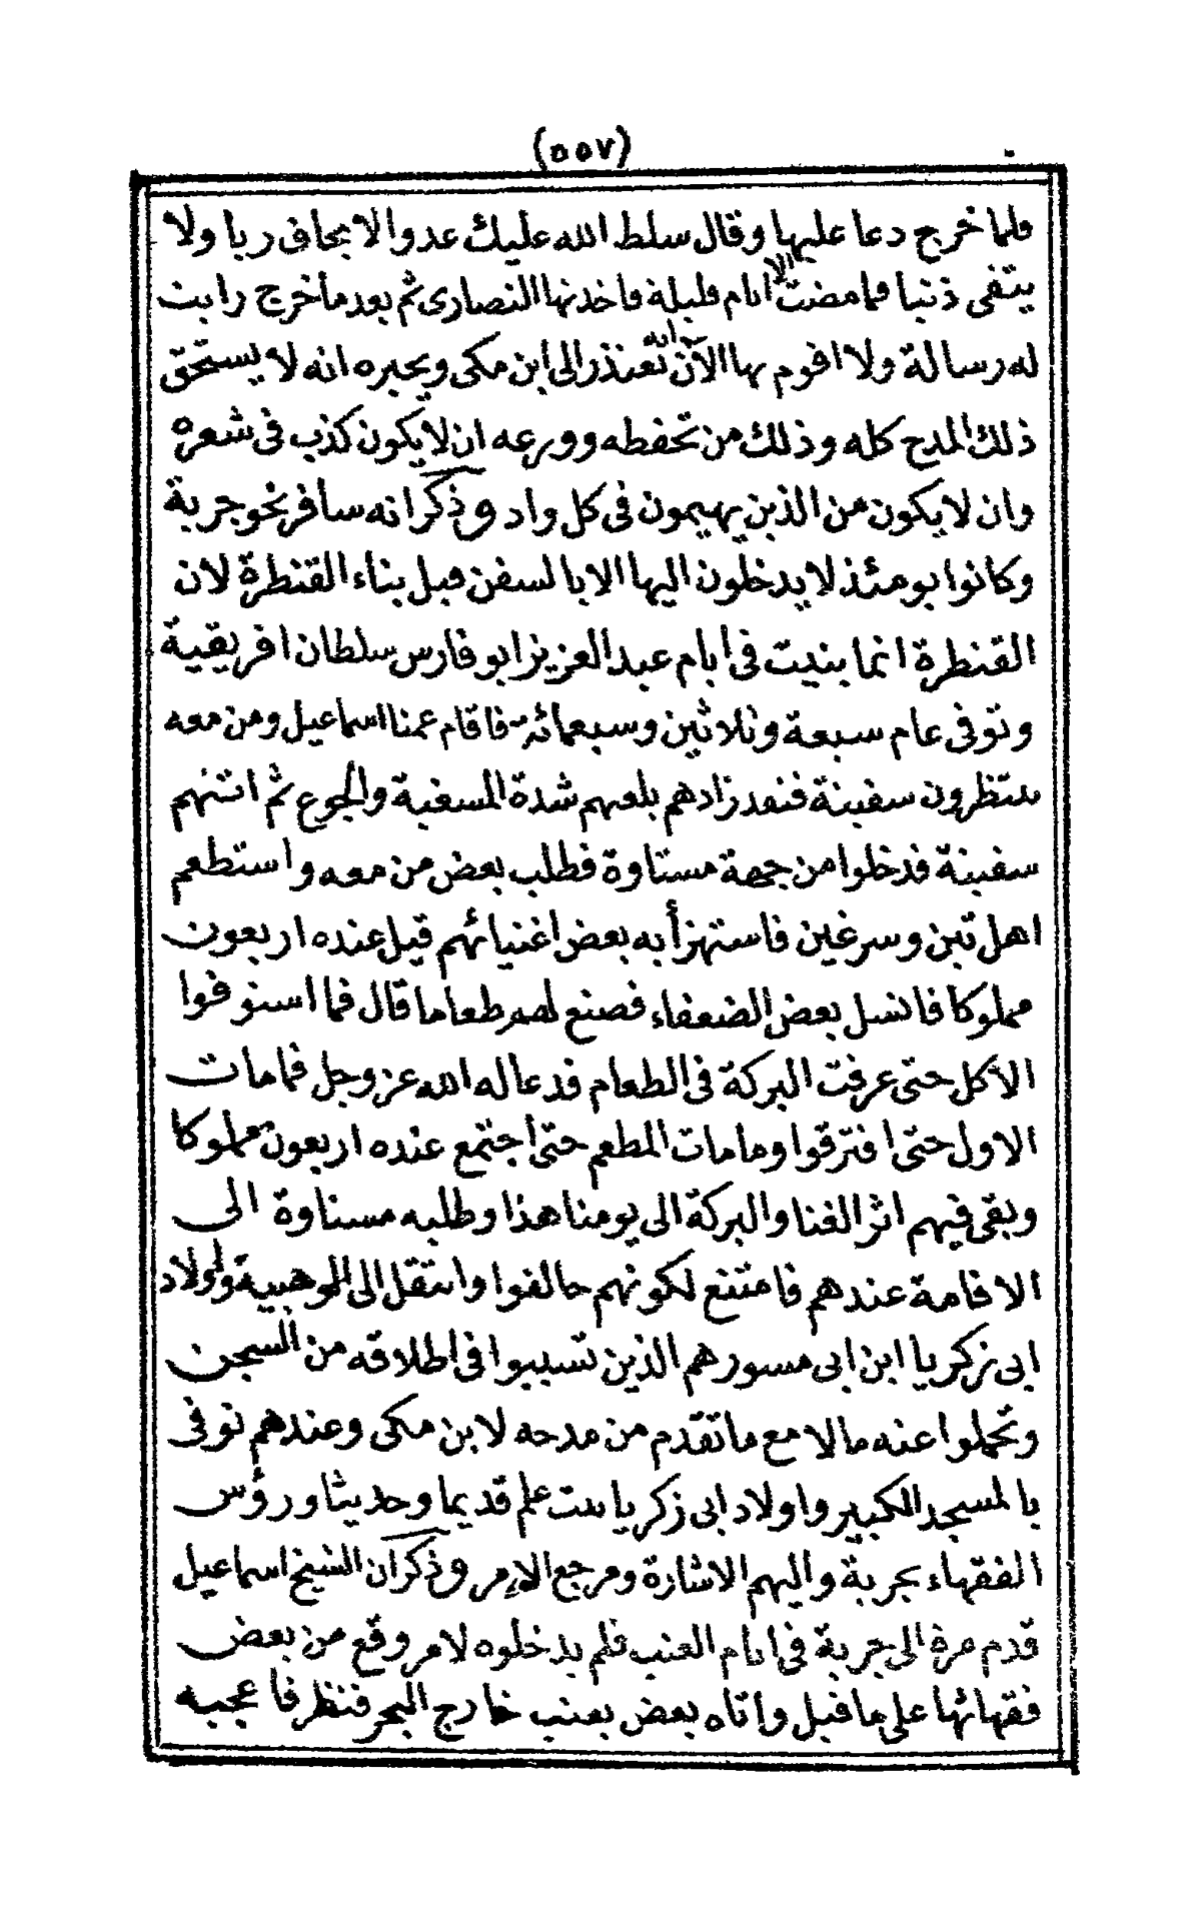 (٥٥٧)
فلما خرج دعا عليها وقال سلط الله عليك عدوا لا يخاف ربا ولا
يتقى ذنبا فما مضت الا ايام قليلة فاخذتها النصارى ثم بعد ما خرج رايت
له رسالة ولا اقوم بها الآن الله تعتذر الى ابن مكى ويخبره انه لا يستحق
ذلك المدح كله وذلك من تحفظه وورعه ان لا يكون كذب فى شعره
وان لا يكون من الذين يهيمون فى كل واد وذكر انه سافر نحو جربة
وكانوا يومئذ لا يدخلون اليها الا بالسفن قبل بناء القنطرة لان
القنطرة انما بنيت فى ايام عبد العزيز ابو فارس سلطان افريقية
وتوفى عام سبعة وثلاثين وسبعمائة فاقام عمنا اسماعيل ومن معه
ينتظرون سفينة فنفد زادهم بلغهم شدة المسغبة والجوع ثم اتتهم
سفينة فدخلوا من جهة مستاوة فطلب بعض من معه واستطعم
اهل تبن وسرغين فاستهزأ به بعض اغنيائهم قيل عنده اربعون
مملوكا فانسل بعض الضعفاء فصنع لهم طعاما قال فما استوفوا
الاكل حتى عرفت البركة فى الطعام فدعا له الله عز وجل فما مات
الاول حتى افترقوا وما مات المطعم حتى اجتمع عنده اربعون مملوكا
وبقى فيهم اثر الغنا والبركة الى يومنا هذا وطلبه مستاوة الى
الاقامة عندهم فامتنع لكونهم خالفوا وانتقل الى الوهبية واولاد
ابى زكريا ابن ابى مسور هم الذين تسببوا فى اطلاقه من السجن
وتحملوا عنه مالا مع ما تقدم من مدحه لابن مكى وعندهم توفى
بالمسجد الكبير واولاد ابى زكريا بيت علم قديما وحديثا ورؤس
الفقهاء بجربة واليهم الاشارة ومرجع الامر وذكر ان الشيخ اسماعيل
قدم مرة الى جربة فى ايام العنب فلم يدخلوه لامر وقع من بعض
فقهائها على ما قيل واتاه بعض بعنب خارج البحر فنظر فاعجبه